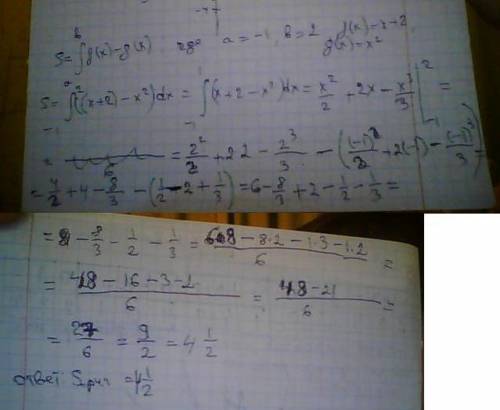 S = ∫ₐᵇ f(x) - g(x) где a = -1, b = 2 f(x) = x+2
g(x) = x²
S = ∫₋₁² ((x+2) - x²)dx = ∫₋₁ (x+2-x²)dx = x²/2 + 2x - x³/3 |₋₁² =
= 2²/2 + 2·2 - 2³/3 - ((-1)²/2 + 2(-1) - (-1)³/3) =
= 4/2 + 4 - 8/3 - (1/2 - 2 + 1/3) = 6 - 8/3 + 2 - 1/2 - 1/3 =
= 8 - 8/3 - 1/2 - 1/3 = (6·8 - 8·2 - 1·3 - 1·2)/6 =
= (48 - 16 - 3 - 2)/6 = (48 - 21)/6 =
= 27/6 = 9/2 = 4 1/2
ответ Sфиг = 4 1/2